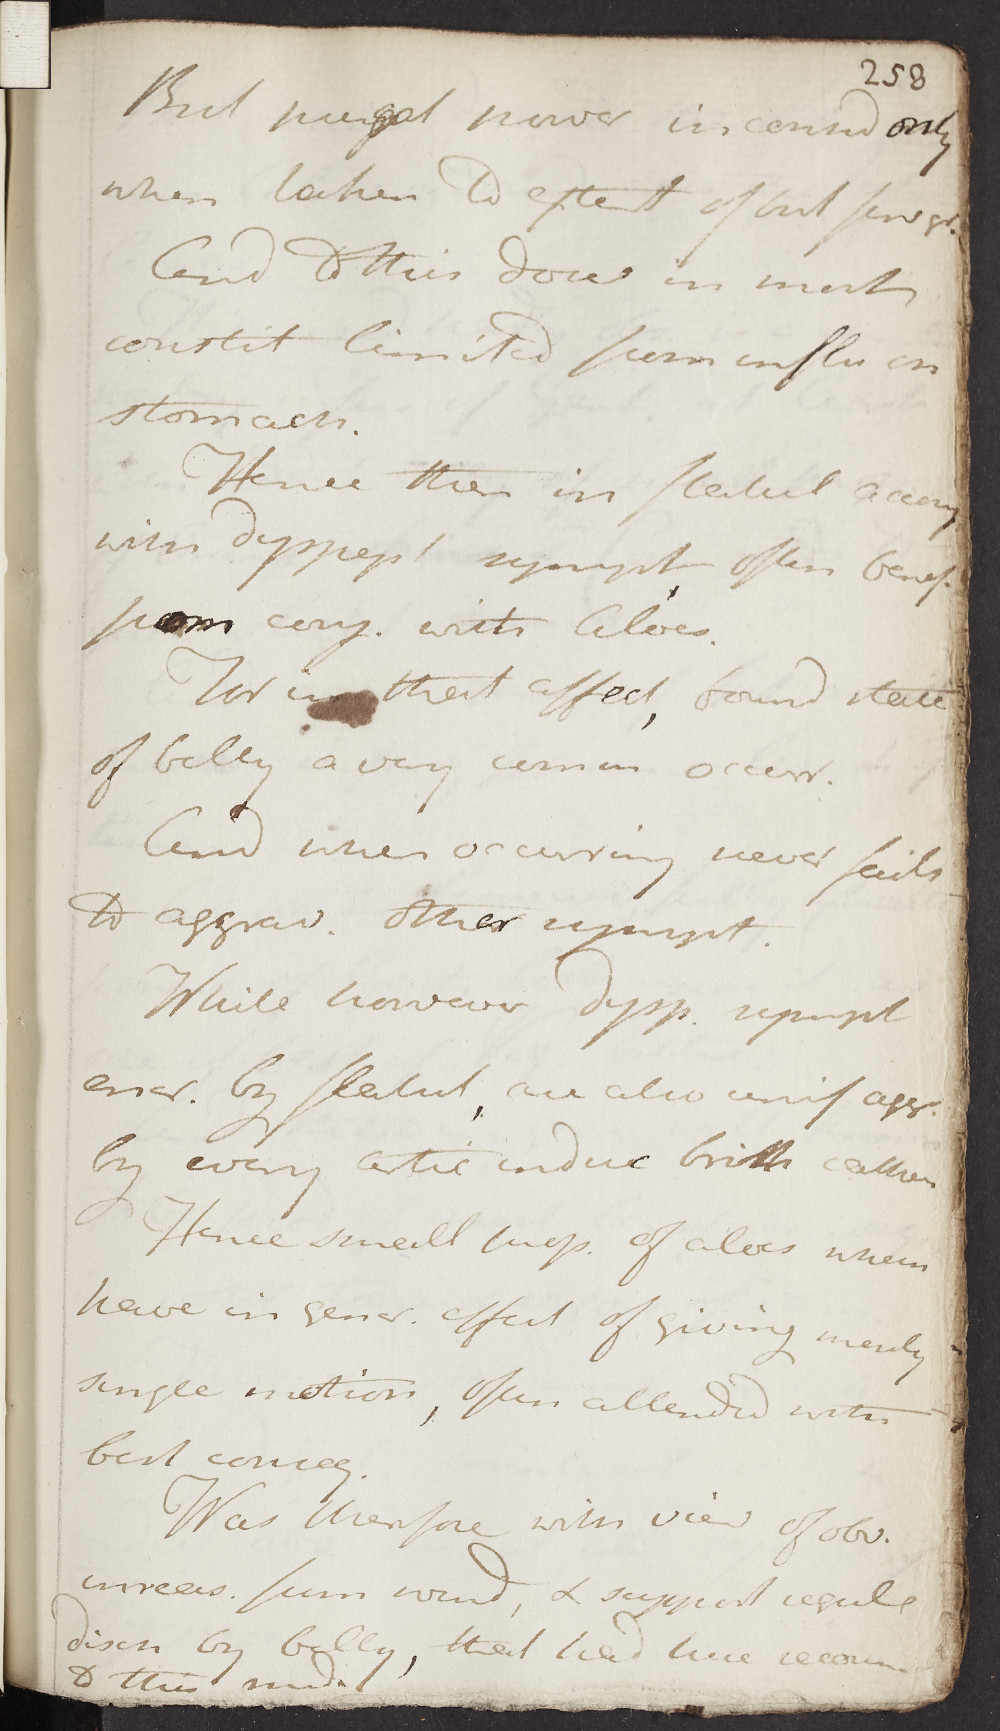 258
But purgat power inconsid only
when taken to extent of but few gr.
And to this dose in most
constit limited from influ on
stomach.
Hence then in flatul accomp
with dyspept sympt often benef.
from conj. with Aloes.
For in that affect, bound state
of belly a very common occurr.
And when occurring never fails
to aggrav. other sympt.
While however dysp. sympt
encr. by flatul, are also unif aggr.
by every artic induc brisk cathar
Hence small prop. of aloes when
have in gener. effect of giving merely
single motion, often attended with
best conseq.
Was therefore with view of obv.
uneas. from wind, & support regul
disch by belly, that had here recourse
to this med.